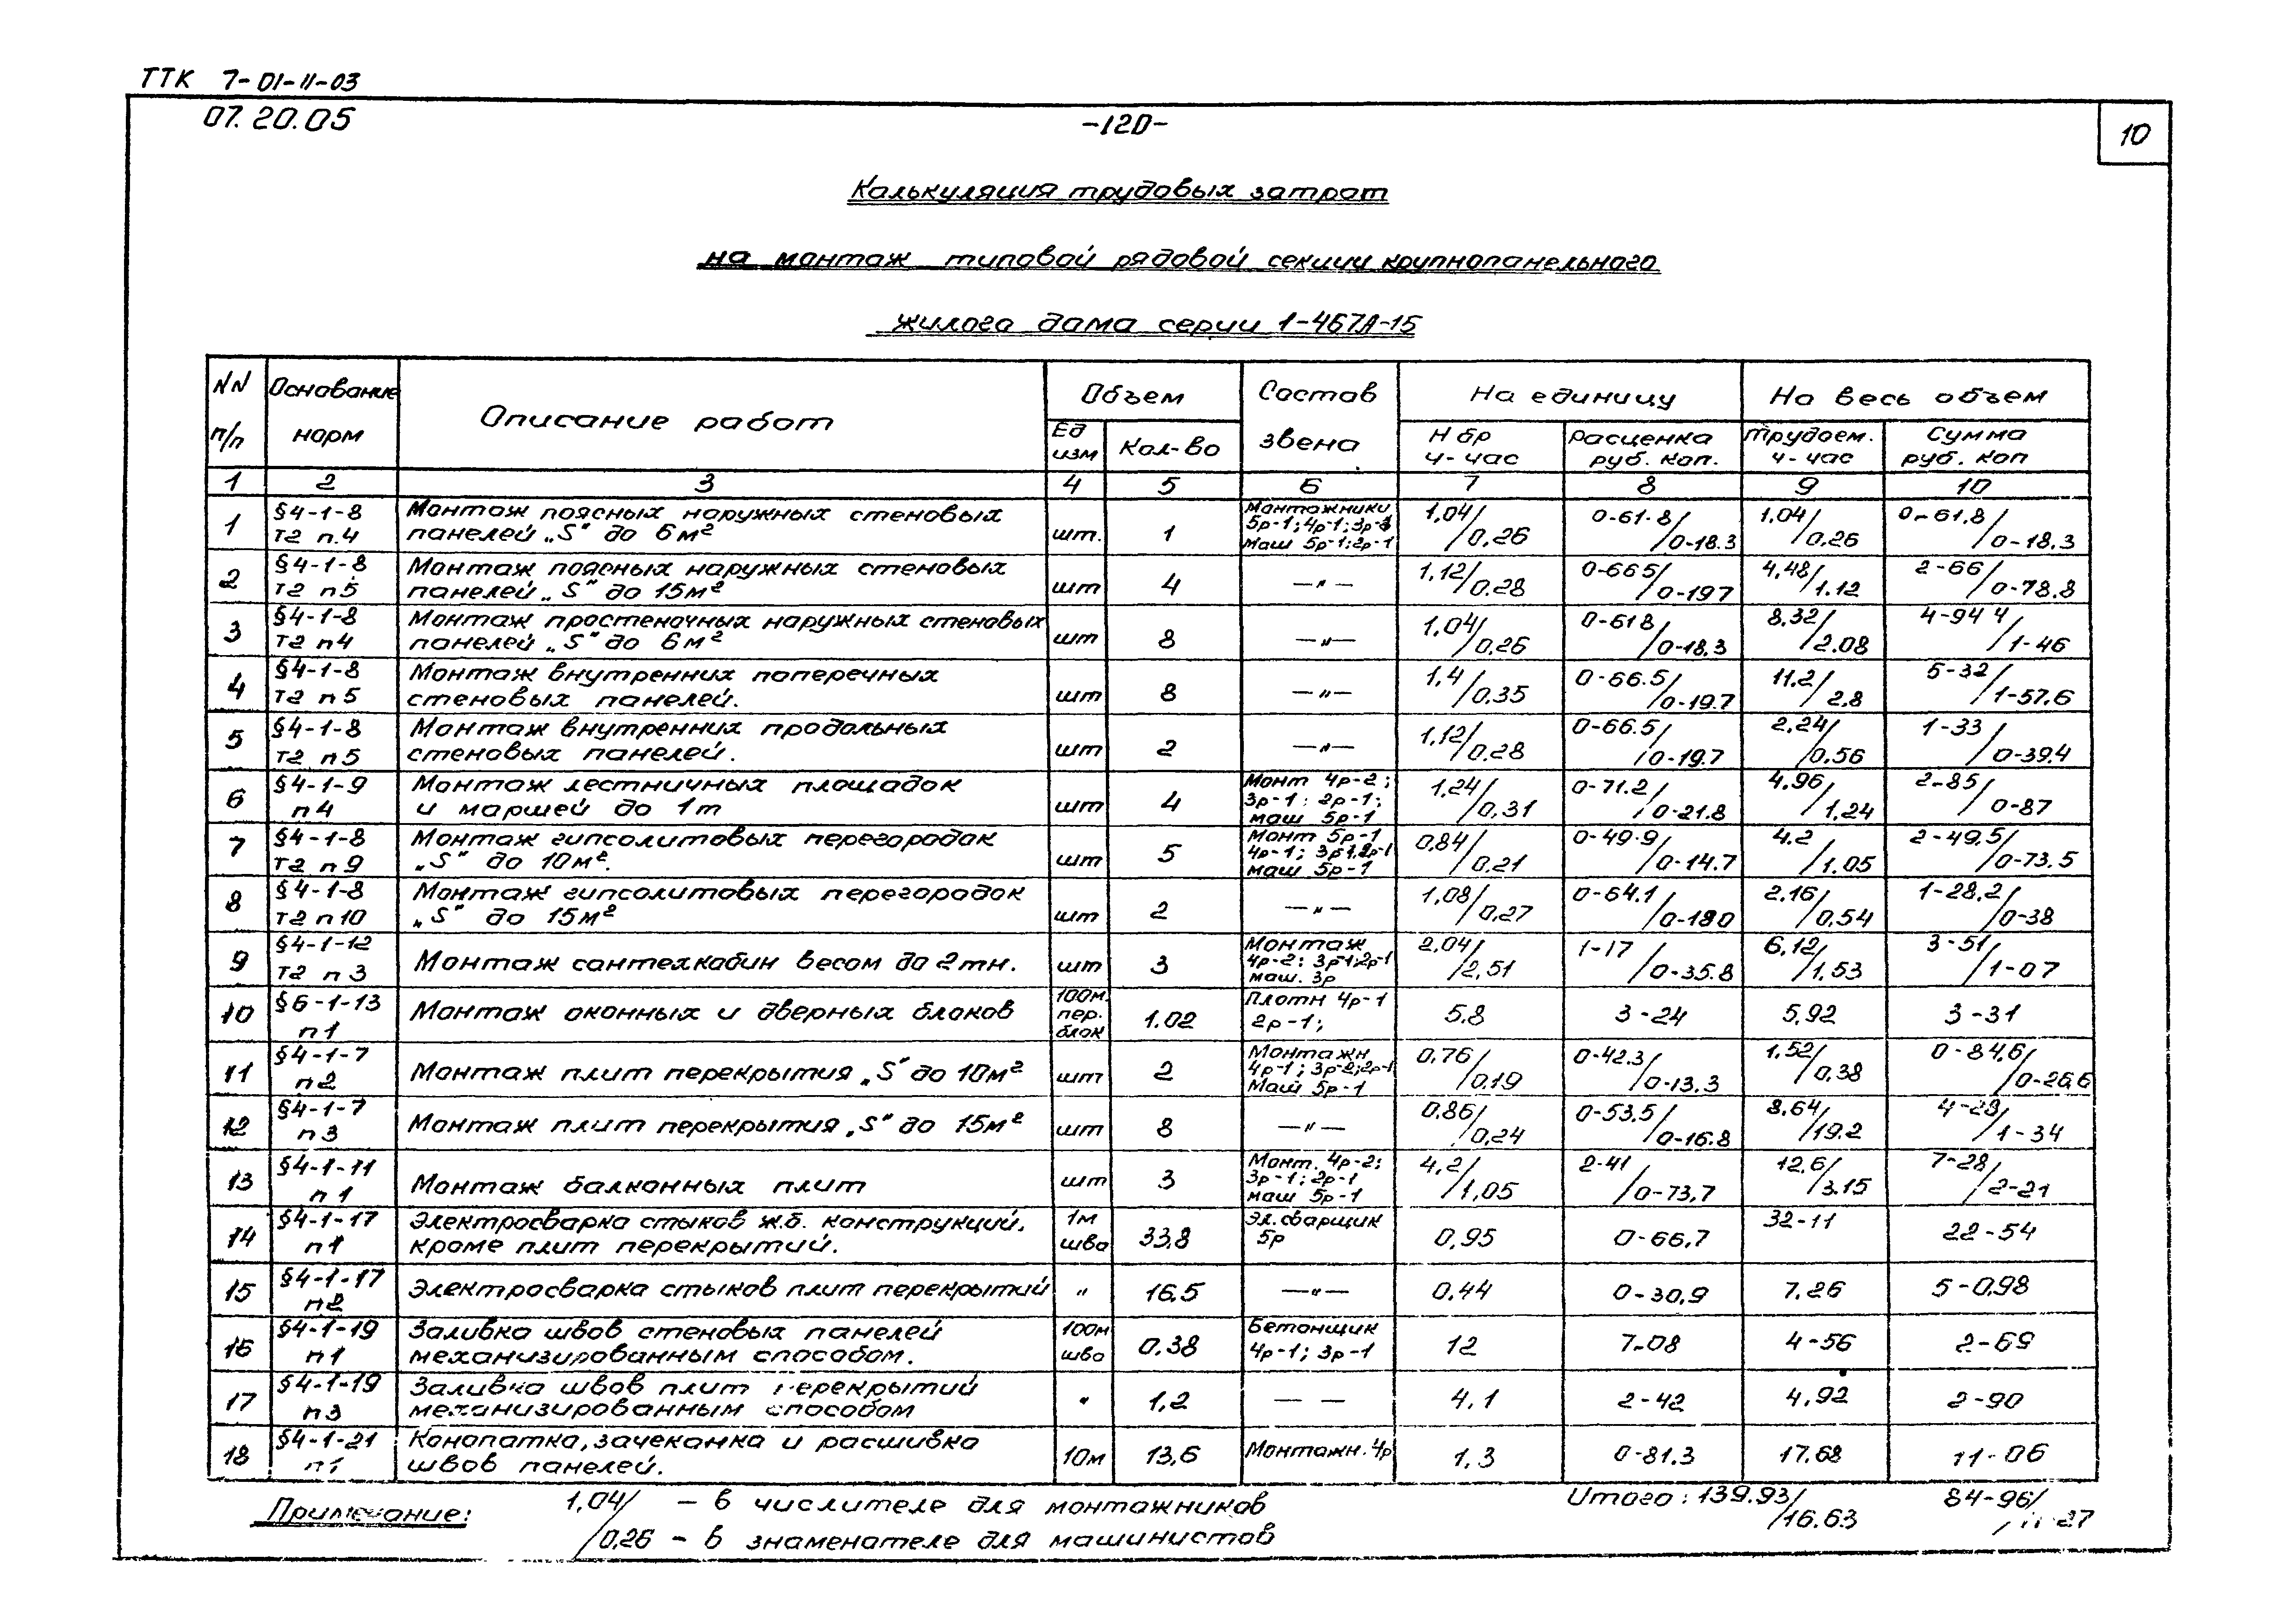 ТТК 7-01-11-03
07.20.05
-120-
10
Калькуляция трудовых затрат
на монтаж типовой рядовой секции крупнопанельного
жилого дома серии 1-467А-15
NN п/п Основание норм Описание работ Объем Состав звена На единицу На весь объем
Ед изм Кол-во Н вр ч-час Расценка руб. коп. Трудоем. ч-час Сумма руб. коп
1 2 3 4 5 6 7 8 9 10
1 §4-1-8 т2 п.4 Монтаж поясных наружных стеновых панелей „S" до 6м² шт. 1 Монтажники 5р-1; 4р-1; 3р-1 маш 5р-1; 2р-1 1,04/0,26 0-61.8/0-18.3 1,04/0,26 0-61,8/0-18,3
2 §4-1-8 т2 п5 Монтаж поясных наружных стеновых панелей „S" до 15м² шт 4 —"— 1,12/0.28 0-665/0-197 4,48/1.12 2-66/0-78.8
3 §4-1-8 т2 п4 Монтаж простеночных наружных стеновых панелей „S" до 6м² шт 8 —"— 1,04/0,26 0-618/0-18,3 8,32/2.08 4-944/1-46
4 §4-1-8 т2 п5 Монтаж внутренних поперечных стеновых панелей. шт 8 —"— 1,4/0,35 0-66.5/0-19.7 11,2/2,8 5-32/1-57,6
5 §4-1-8 т2 п5 Монтаж внутренних продольных стеновых панелей. шт 2 —"— 1,12/0.28 0-66.5/0-19.7 2,24/0,56 1-33/0-39.4
6 §4-1-9 п4 Монтаж лестничных площадок и маршей до 1т шт 4 Монт 4р-2; 3р-1; 2р-1; маш 5р-1 1,24/0,31 0-71.2/0-21.8 4,96/1,24 2-85/0-87
7 §4-1-8 т2 п9 Монтаж гипсолитовых перегородок „S" до 10м². шт 5 Монт 5р-1 4р-1; 3р-1, 2р-1 маш 5р-1 0,84/0,21 0-49.9/0-14.7 4.2/1.05 2-49,5/0-73.5
8 §4-1-8 т2 п10 Монтаж гипсолитовых перегородок „S" до 15м² шт 2 —"— 1,08/0,27 0-64.1/0-180 2,16/0,54 1-28,2/0-38
9 §4-1-12 т2 п3 Монтаж сантехкабин весом до 2тн. шт 3 Монтаж 4р-2; 3р-1; 2р-1 маш. 3р 2,04/2,51 1-17/0-35.8 6,12/1,53 3-51/1-07
10 §6-1-13 п1 Монтаж оконных и дверных блоков 100м. пер. блок 1.02 Плотн 4р-1 2р-1; 5.8 3-24 5,92 3-31
11 §4-1-7 п2 Монтаж плит перекрытия „S" до 10м² шт 2 Монтажн 4р-1; 3р-2; 2р-1 Маш 5р-1 0,76/0,19 0-42.3/0-13.3 1,52/0,38 0-84,6/0-26,6
12 §4-1-7 п3 Монтаж плит перекрытия „S" до 15м² шт 8 —"— 0,86/0,24 0-53.5/0-16.8 8,64/19.2 4-28/1-34
13 §4-1-11 п1 Монтаж балконных плит шт 3 Монт. 4р-2; 3р-1; 2р-1 маш 5р-1 4,2/1,05 2-41/0-73,7 12,6/3.15 7-28/2-21
14 §4-1-17 п1 Электросварка стыков ж.б. конструкций, кроме плит перекрытий. 1м шва 33,8 Эл. сварщик 5р 0,95 0-66,7 32-11 22-54
15 §4-1-17 п2 Электросварка стыков плит перекрытий " 16,5 —"— 0,44 0-30,9 7.26 5-0,98
16 §4-1-19 п1 Заливка швов стеновых панелей механизированным способом. 100м шва 0,38 Бетонщик 4р-1; 3р-1 12 7-08 4-56 2-69
17 §4-1-19 п3 Заливка швов плит перекрытий механизированным способом " 1,2 — — 4,1 2-42 4,92 2-90
18 §4-1-21 п1 Конопатка, зачеканка и расшивка швов панелей. 10м 13,6 Монтажн. 4р 1,3 0-81.3 17.68 11-06
Примечание: 1,04/ – в числителе для монтажников Итого: 139.93/16.63 84-96/
/0,26 – в знаменателе для машинистов